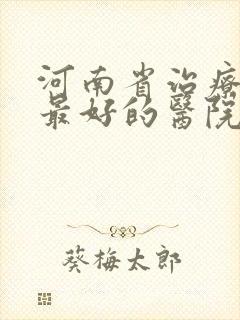 河南省治療
最好的醫院
葵梅太郎